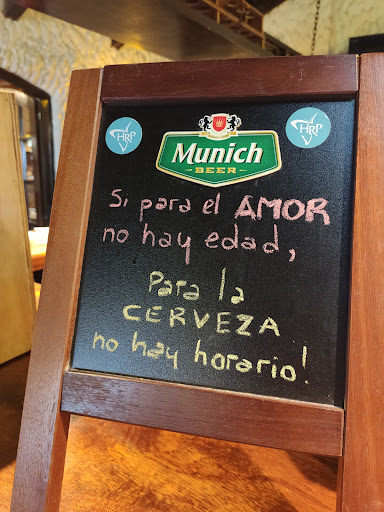 HRP
HRP
Munich
BEER
Si para el AMOR
no hay edad,
Para la
CERVEZA
no hay horario!